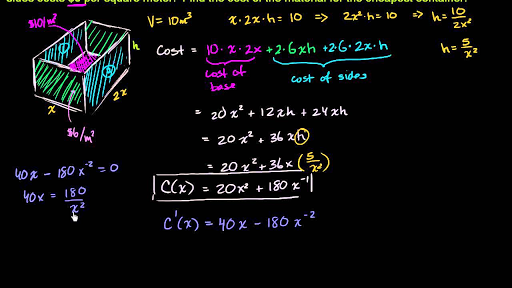 sides costs $6 per square meter. Find the cost of the material for the cheapest container.
$10/m²
V = 10m³ x · 2x · h = 10 ⇒ 2x²·h = 10 ⇒ h = 10/2x²
h
h = 5/x²
Cost = 10·x·2x + 2·6xh + 2·6·2x·h
cost of base
cost of sides
x
2x
$6/m²
= 20x² + 12xh + 24xh
= 20x² + 36xh
= 20x² + 36x(5/x²)
C(x) = 20x² + 180x⁻¹
C'(x) = 40x - 180x⁻²
40x - 180x⁻² = 0
40x = 180/x²